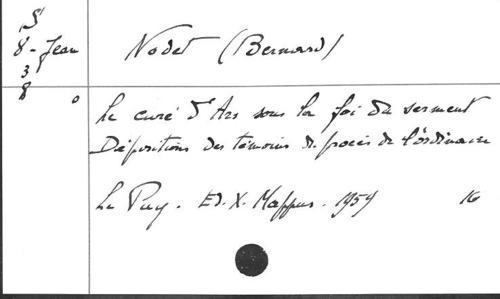 S
8 - Jean
3
8 o
Nodet (Bernard)
Le curé d'Ars sous la foi du serment
Dépositions des témoins du procès de l'ordinaire
Le Puy. Ed. X. Mappus. 1959 16